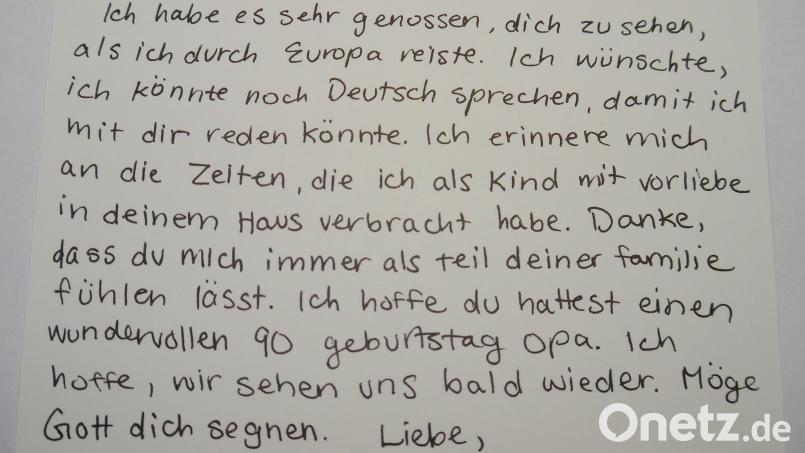 Ich habe es sehr genossen, dich zu sehen,
als ich durch Europa reiste. Ich wünschte,
ich könnte noch Deutsch sprechen, damit ich
mit dir reden könnte. Ich erinnere mich
an die Zeiten, die ich als Kind mit vorliebe
in deinem Haus verbracht habe. Danke,
dass du mich immer als teil deiner familie
fühlen lässt. Ich hoffe du hattest einen
wundervollen 90 geburtstag Opa. Ich
hoffe, wir sehen uns bald wieder. Möge
Gott dich segnen. Liebe,
Onetz.de